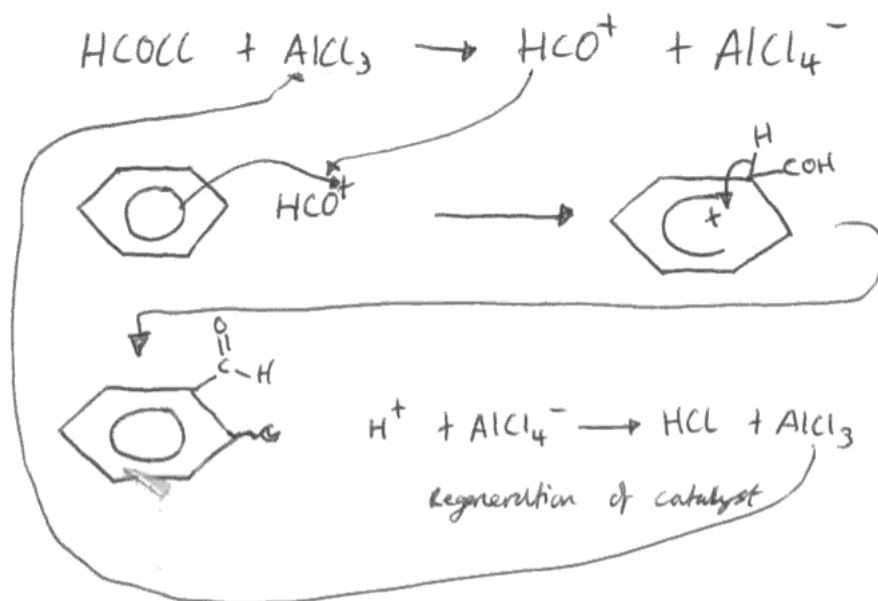 HCOCl + AlCl₃ → HCO⁺ + AlCl₄⁻
HCO⁺
H
COH
+
O
C H
H⁺ + AlCl₄⁻ → HCl + AlCl₃
Regeneration of catalyst